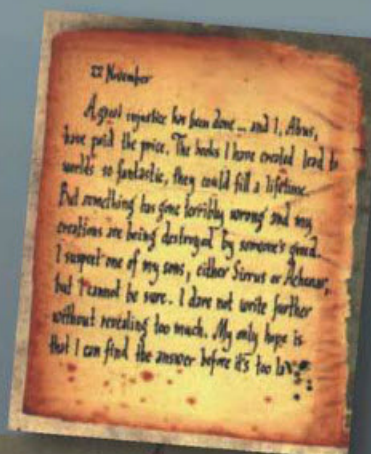 22 November
A great injustice has been done ... and I, Atrus,
have paid the price. The books I have created lead to
worlds so fantastic, they could fill a lifetime.
But something has gone terribly wrong and my
creations are being destroyed by someone's greed.
I suspect one of my sons, either Sirrus or Achenar,
but I cannot be sure. I dare not write further
without revealing too much. My only hope is
that I can find the answer before it's too la